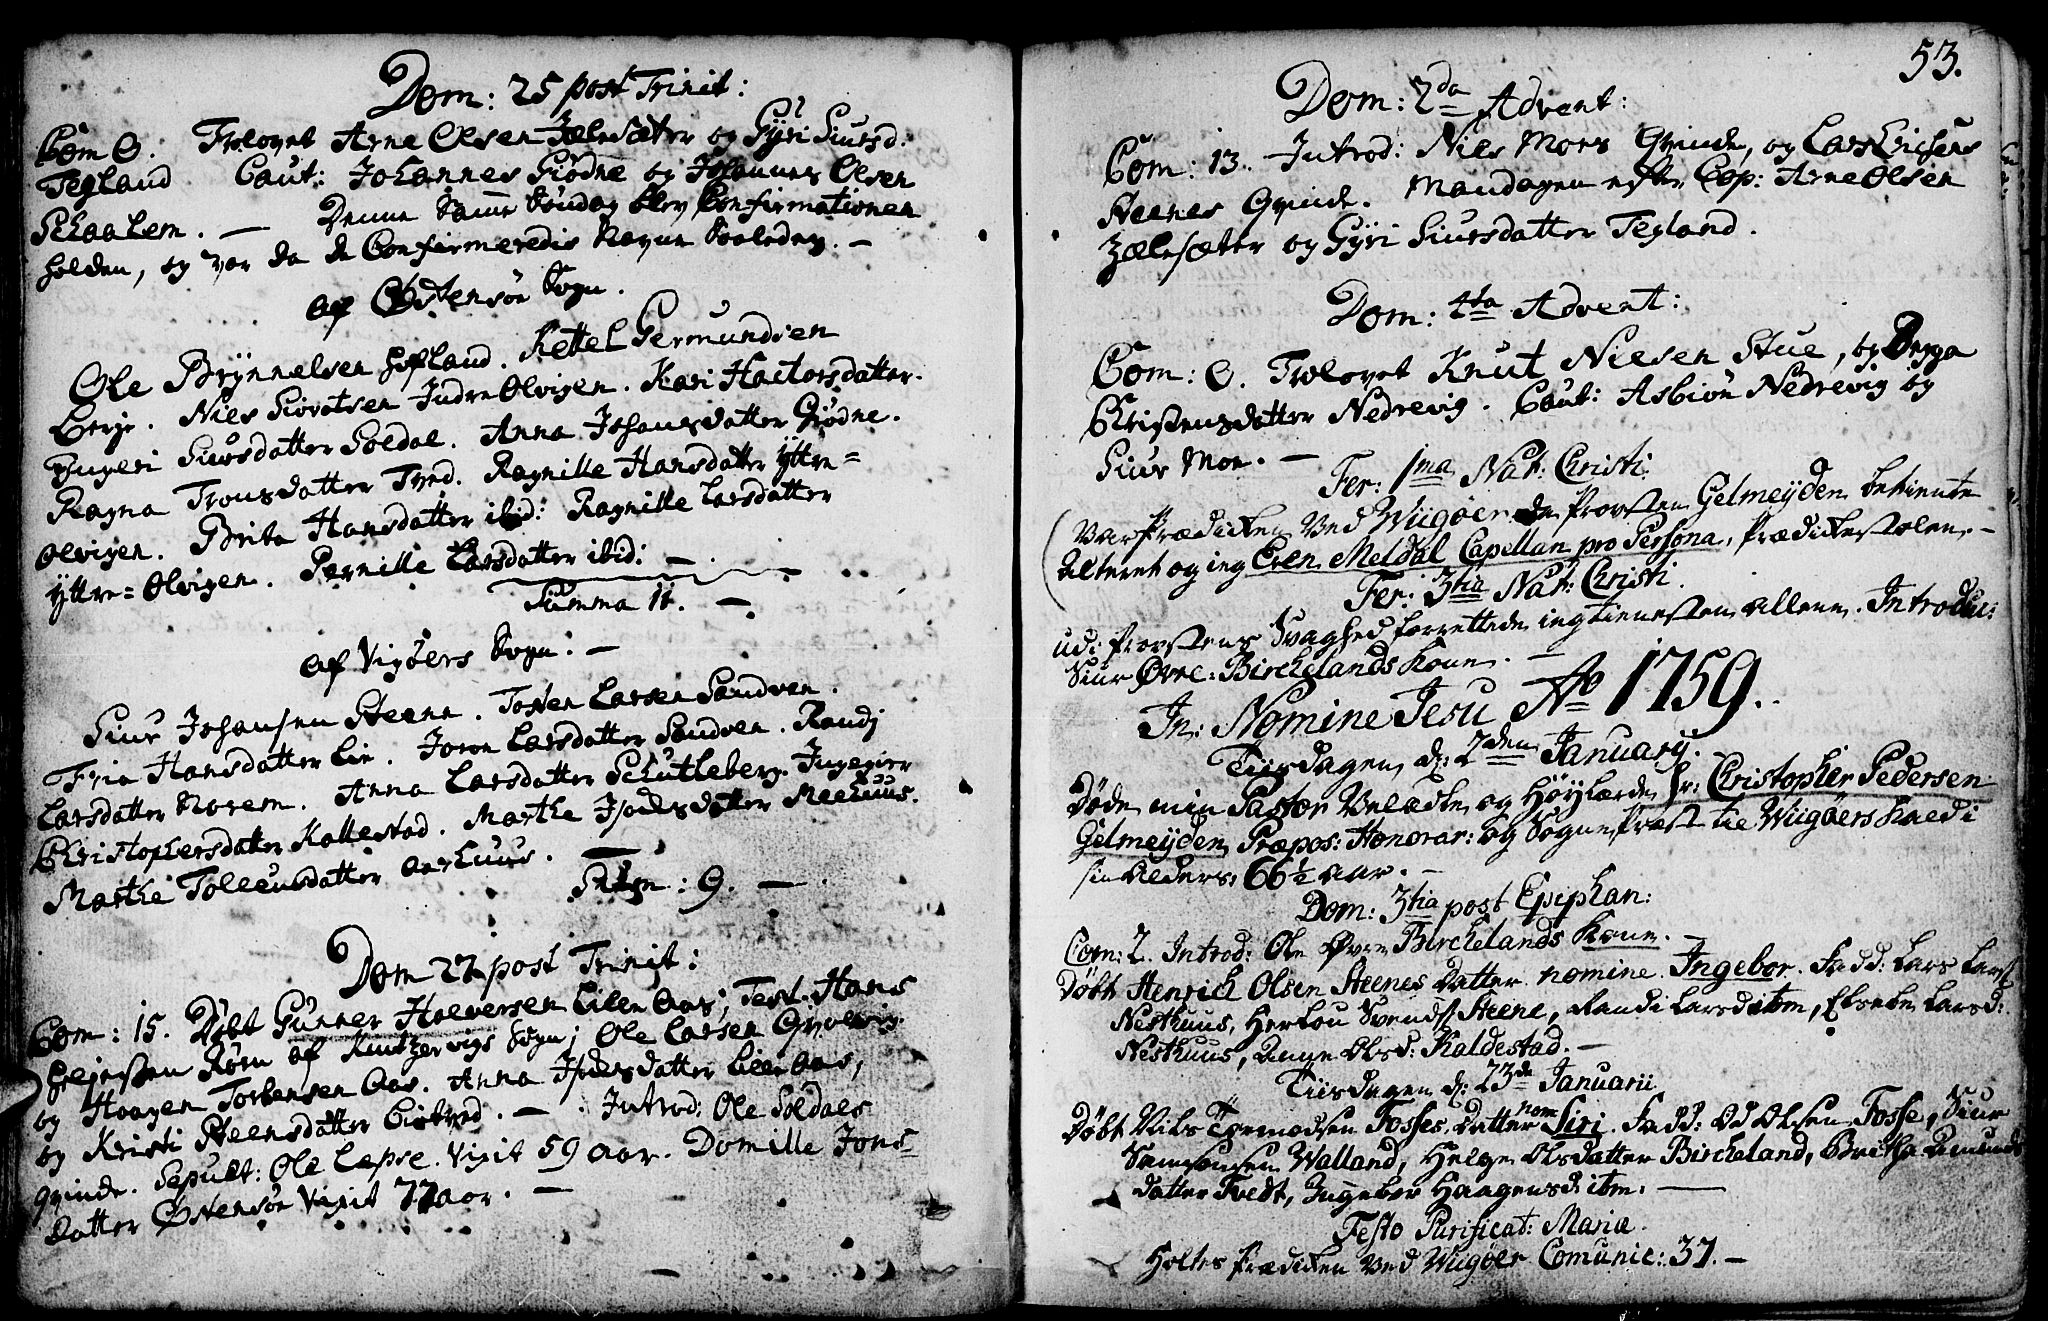 Dom: 25 post Trinit:
Com 0. Trolovet Arne Olsen Jælesæter og Gÿri Siursd:
Tegland Caut: Johannes Giødne og Johannes Olsen
Schaalem. — Denne Samme Søndag blev Confirmationen
holden, og var da de Confirmeredis Navne Saaledes. —
af Østensöe Sogn.
Ole Brÿnnelsen Hofland. Kettel Germundsen
Berje. Niels Siovatsen Indre Olvigen. Kari Hactorsdatter.
Ingeri Siursdatter Soldal. Anna Johansdatter Giødne.
Ragna Tronsdatter Tved. Ragnille Hansdatter Ÿttre=
olvigen. Brita Hansdatter ibid: Ragnille Larsdatter
Ÿttre=Olvigen. Pernille Larsdatter ibid: —
Summa 11. —
af Vigøers Sogn: —
Siur Johansen Steene. Tosten Larsen Sandven.
Fria Hansdatter Lie. Joron Larsdatter Sandven. Randj
Larsdatter Norem. Anna Larsdatter Schutleberg. Ingegier
Christophersdatter Kallestad. Marthe Isdatter Meehuus.
Marthe Tolleivsdatter Aarhuus. —
Sum: 9. —
Dom 27 post Trinit:
Com: 15. Døbt Gunner Halversen Lilleaas; Test. Hans
Rørn af Kintzervigs Sogn; Ole Larsen
og Haagen Torbensen Aas. Anna datter Lilleaas,
og Kristi Steensdatter Bistved. — . Introd: Ole Soldals
qvinde. Sepult: Ole Lepse. Vixit 59 aar. Domille Jons=
datter Østensöe Vixit 77 aar. —
53.
Dom: 2da Advent:
Com: 13. Introd: Niels Moes Qvinde, og Lars Erichsens
Steenes Qvinde. Mandagen efter Cop: Arne Olsen
Jælesæter og Gÿri Siursdatter Tegland.
Dom: 4ta Advent:
Com: 0. Trolovet Knut Nielsen Stue, og
Kristensdatter Nedrevig. Caut: Asbiön Nedrevig og
Siur Moe. —
Fer: 1ma Nat: Christi:
Var Prædicken Ved Wiigøer da Provsten Gelmeÿden betiente
Alteret og ieg Even Meldal Capellan pro Persona, Prædickestolen. —
Fer: 3tia Nat: Christi.
udi Provstens Svaghed forrettede ieg tienesten allene. Introdu:
Siur Øvre: Birchelands Kone. —
In: Nomine Jesu Ao 1759.
Tiirsdagen d: 2den Januarÿ.
Døde min Pastor Velædle og Høÿlærde hr: Christopher Pedersen
Gelmeÿden Præpos: Honorar: og Sogne Præst til Wiigøers Kald i
sin Alders: 66½ aar. —
Dom: 3tia post Epiphan:
Com: 2. Introd: Ole Øvre Birchelands Kone. —
Døbt Henrich Olsen Steenes Datter nomine. Ingebor. Fadd: Lars Larss:
Nesthuus, Herlou Svends: Steene, Randi Larsd ibm, Elsebe Larsd:
Nesthuus, Aage Olsd: Kaldestad. —
Tiirsdagen d: 23de Januarii
Døbt Nils Tormodsen Fosses Datter nom Siri. Fadd: Od Olsen Fosse, Siur
Samsonsen Walland, Helge Olsdatter Bircheland, Britha Amunds
datter Tvedt, Ingebor Haagensd: ibm. —
Festo Purificat: Mariæ.
Holtes Prædicken Ved Wiigøer Comunic: 37. —